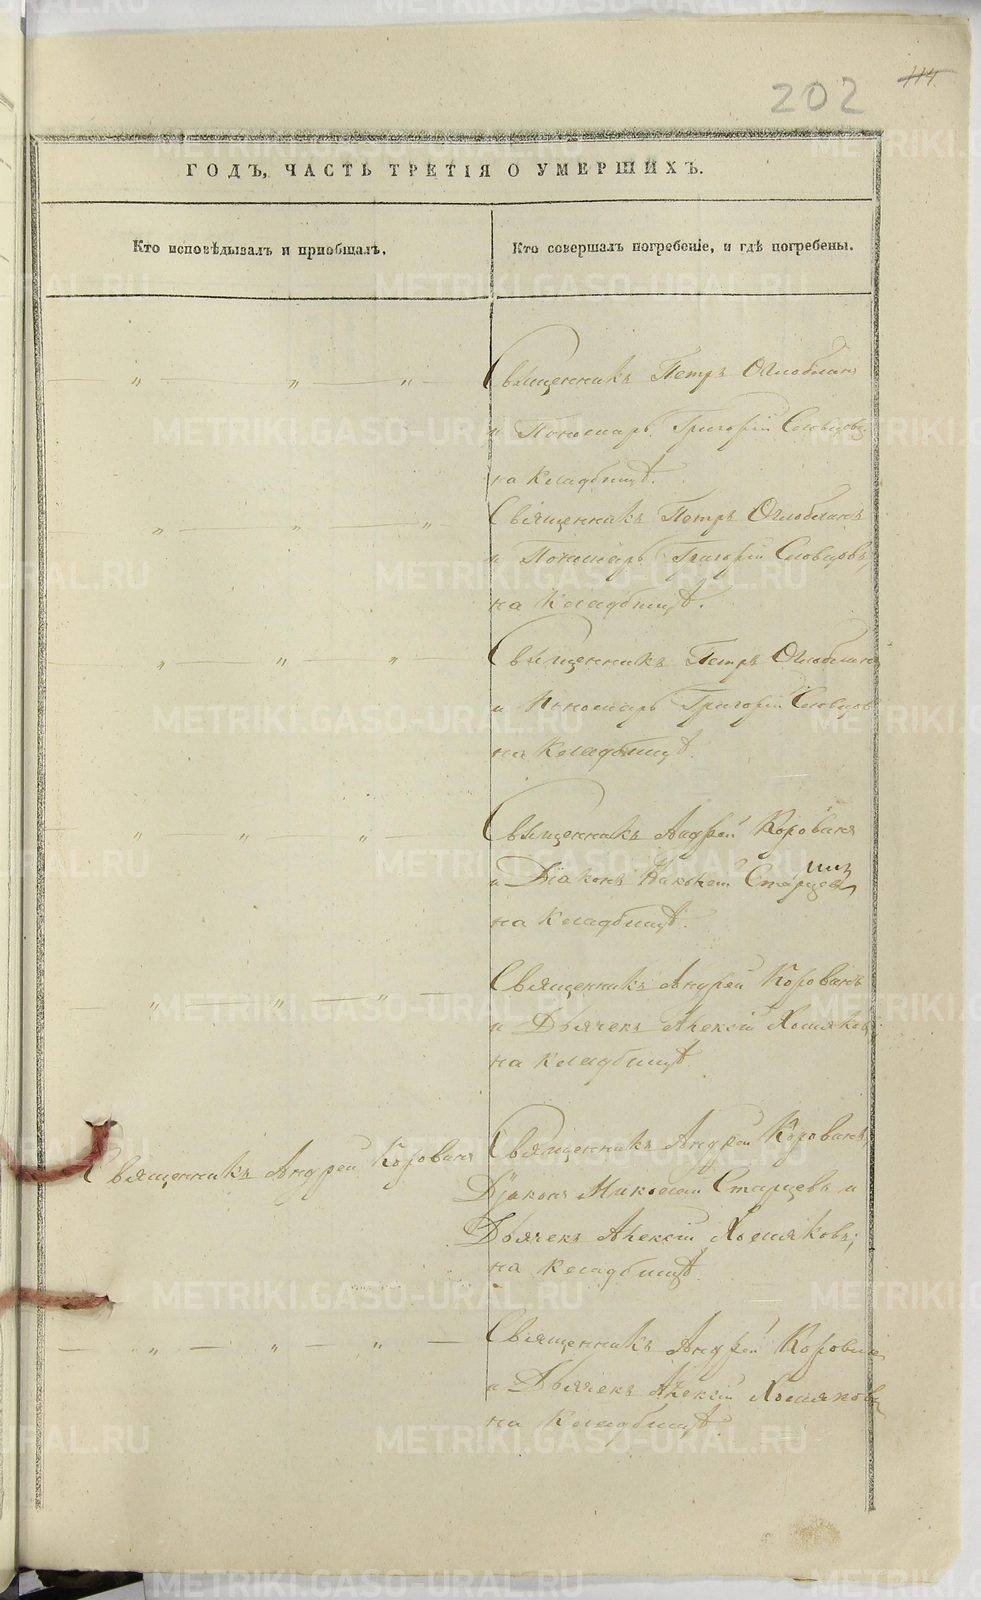 202
114
ГОДЪ, ЧАСТЬ ТРЕТІЯ О УМЕРШИХЪ.
Кто исповѣдывалъ и пріобщалъ.
Кто совершалъ погребеніе, и гдѣ погребены.
Священникъ Петръ Оглоблинъ
и Пономарь Григорій Словцовъ
на Кладбищѣ.
Священникъ Петръ Оглоблинъ
и Пономарь Григорій Словцовъ,
на Кладбищѣ.
Священникъ Петръ Оглоблинъ
и Пономарь Григорій Словцовъ
на Кладбищѣ.
Священникъ Андрей Коровинъ
и Діаконъ Старцевъ
на Кладбищѣ.
Священникъ Андрей Коровинъ
и Дьячекъ Алексій Хомяковъ,
на Кладбищѣ.
Священникъ Андрей Коровинъ
Священникъ Андрей Коровинъ,
Діаконъ Николай Старцевъ и
Дьячекъ Алексій Хомяковъ;
на Кладбищѣ.
Священникъ Андрей Коровинъ
и Дьячекъ Алексій Хомяковъ
на Кладбищѣ.
METRIKI.GASO-URAL.RU